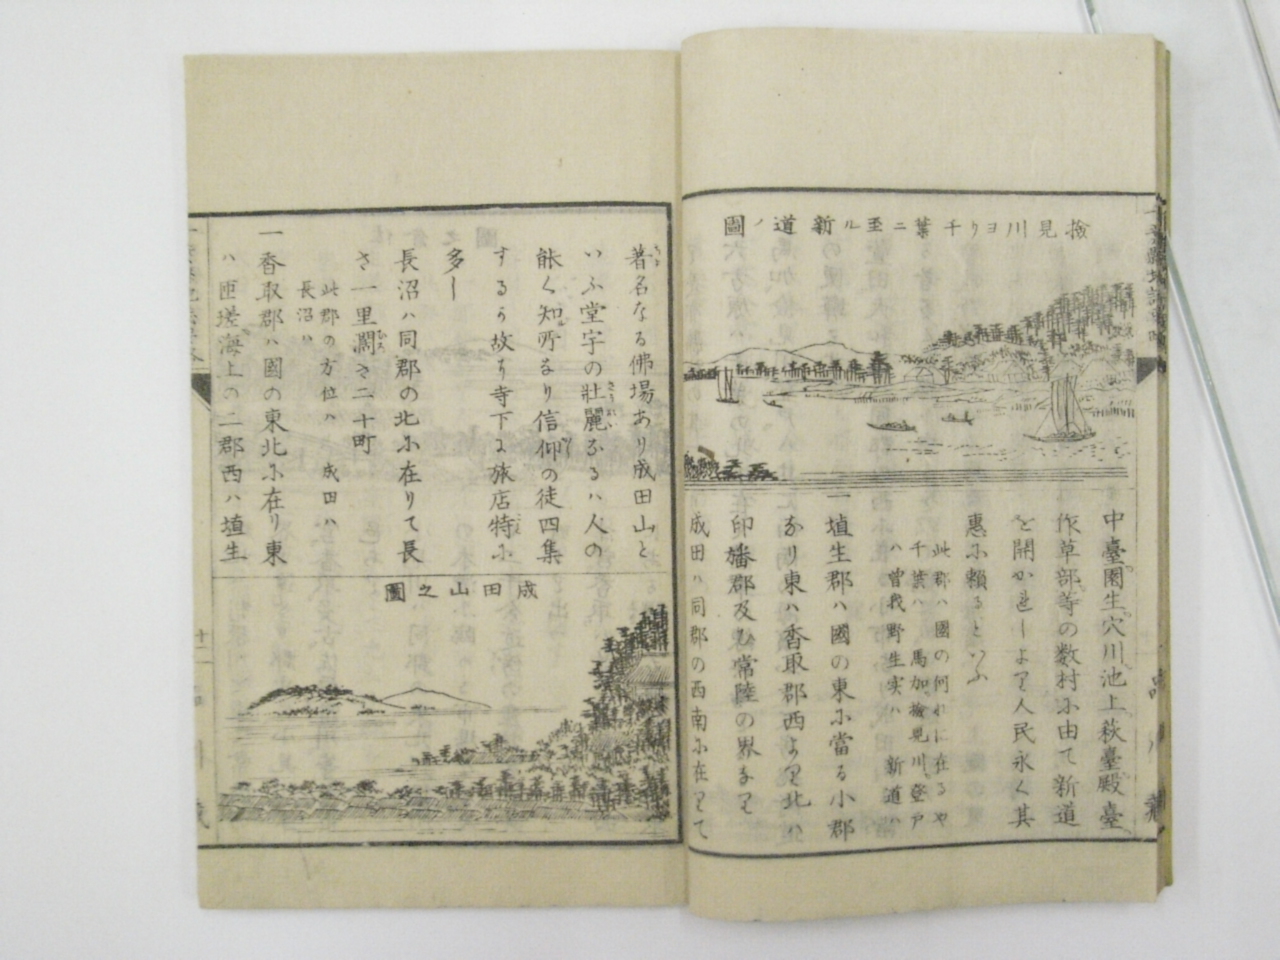 檢見川ヨリ千葉ニ至ル新道ノ圖
中臺園生穴川池上萩臺殿臺
作草部等の数村ふ由て新道
を開かれしより人民永く其
惠ふ頼るといふ
此郡ハ國の何れに在るや
千葉ハ 馬加檢見川登戸
ハ 曽我野生実ハ 新道ハ
一埴生郡ハ國の東ふ當る小郡
なり東ハ香取郡西より北ハ
印旛郡及び常陸の界なり
成田ハ同郡の西南ふ在りて
著名なる佛場あり成田山と
いふ堂宇の壮麗なるハ人の
能く知所なり信仰の徒四集
するが故に寺下に旅店特ふ
多し
長沼ハ同郡の北ふ在りて長
さ一里濶さ二十町
此郡の方位ハ 成田ハ
長沼ハ
一香取郡ハ國の東北ふ在り東
ハ匝瑳海上の二郡西ハ埴生
成田山之圖
十二